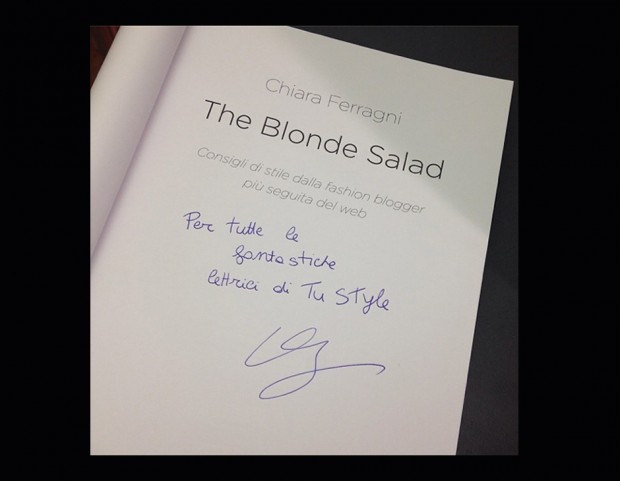 Chiara Ferragni
The Blonde Salad
Consigli di stile dalla fashion blogger
più seguita del web
Per tutte le
fantastiche
lettrici di Tu STyle